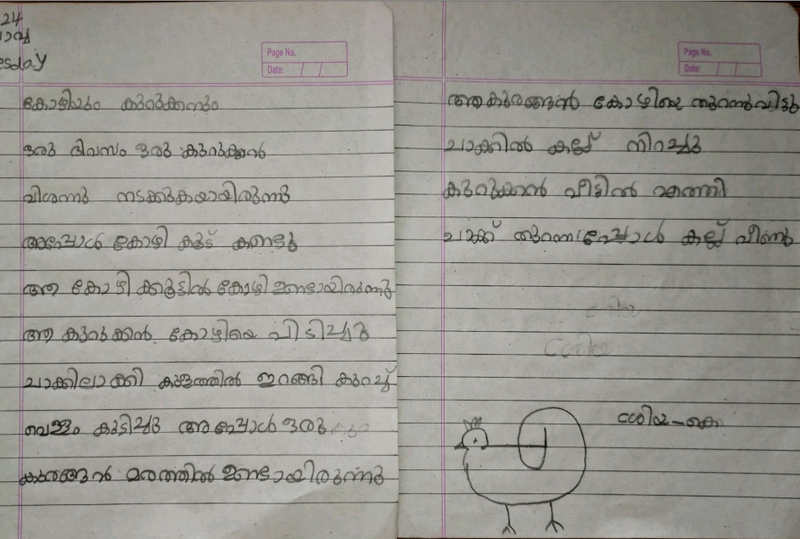 24
esday
Page No.
Date:
കോഴിയും കുറുക്കനും
ഒരു ദിവസം ഒരു കുറുക്കൻ
വിശന്നു നടക്കുകയായിരുന്നു
അപ്പോൾ കോഴി കൂട് കണ്ടു
ആ കോഴി ക്കൂട്ടിൽ കോഴി ഉണ്ടായിരുന്നു
ആ കുറുക്കൻ കോഴിയെ പിടിച്ചു
ചാക്കിലാക്കി കുളത്തിൽ ഇറങ്ങി കുറച്ച്
വെള്ളം കുടിച്ചു അപ്പോൾ ഒരു
കുരങ്ങൻ മരത്തിൽ ഉണ്ടായിരുന്നു
Page No.
Date:
ആ കുരങ്ങൻ കോഴിയെ തുറന്നുവിട്ടു
ചാക്കിൽ കല്ല് നിറച്ചു
കുറുക്കൻ വീട്ടിൽ എത്തി
ചാക്ക് തുറന്നപ്പോൾ കല്ല് വീണു